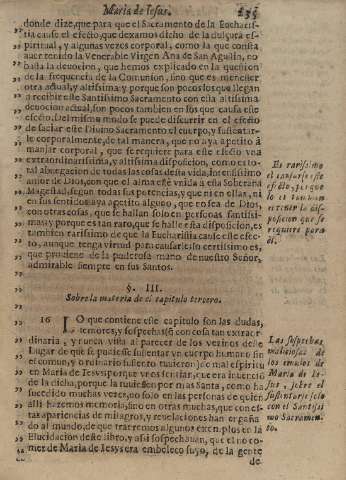 Maria de Iesus. 235
donde dize, que para que el Sacramento de la Eucharis-
cause el efecto, que dexamos dicho de la dulçura es-
piritual, y algunas vezes corporal, como la que consta
auer tenido la Venerable Virgen Ana de San Agustin, no
basta la deuocion, que hemos explicado en la question
de la frequencia de la Comunion, sino que es menester
otra actual, y altissima: y porque son pocos los que llegan
a recibir este Santissimo Sacramento con esta altissima
deuocion actual, son pocos tambien en los que causa este
efecto. Del mismo modo se puede discurrir en el efecto
de saciar este Diuino Sacramento el cuerpo, y sustentar-
le corporalmente, de tal manera, que no aya apetito à
manjar corporal, que se requiere para este efecto vna
extraordinarissima, y altissima disposicion, como es to-
tal abnegacion de todas las cosas desta vida, intensissimo
amor de Dios, con que el alma esté vnida a esta Soberana
Magestad, segun todas sus potencias, y que ni en ellas, ni
en sus sentidos aya apetito alguno, que no sea de Dios,
con otras cosas, que se hallan solo en personas santissi-
mas; y porque es tan raro, que se halle esta disposicion, es
tambien rarissimo de que la Eucharistia cause este efec-
to, aunque tenga virtud para causarle: lo certissimo es,
que prouiene de la poderosa mano de nuestro Señor,
admirable siempre en sus Santos.
Es rarissimo
el causarse este
efecto, porque
lo es tambien
el tener la dis-
posicion que se
requiere para
él.
§. III.
Sobre la materia de el capitulo tercero.
16 LO que contiene este capitulo son las dudas,
temores, y sospechas, con cosa tan extraor-
dinaria, y nunca vista al parecer de los vezinos deste
Lugar de que se pudiesse sustentar vn cuerpo humano sin
el comun, y ordinario sustento tuuieron: ò mal espiritu
en Maria de Iesvs porque
de la dicha, porque la tuuiessen por mas Santa, como ha
sucedido muchas vezes, no solo en las personas de quien
alli hazemos memoria, sino en otras muchas, que con es-
tas apariencias de milagros, y reuelaciones han engaña-
do al mundo, de que traeremos algunos exemplos en la
Elucidacion deste libro, y assi sospechauan, que el no co-
mer de Maria de Iesvs era embeleco suyo, de la gente
de
Las sospechas
maliciosas de
los emulos de
Maria de Ie-
sus, sobre el
sustentarse solo
con el Santissi-
mo Sacramen-
to.